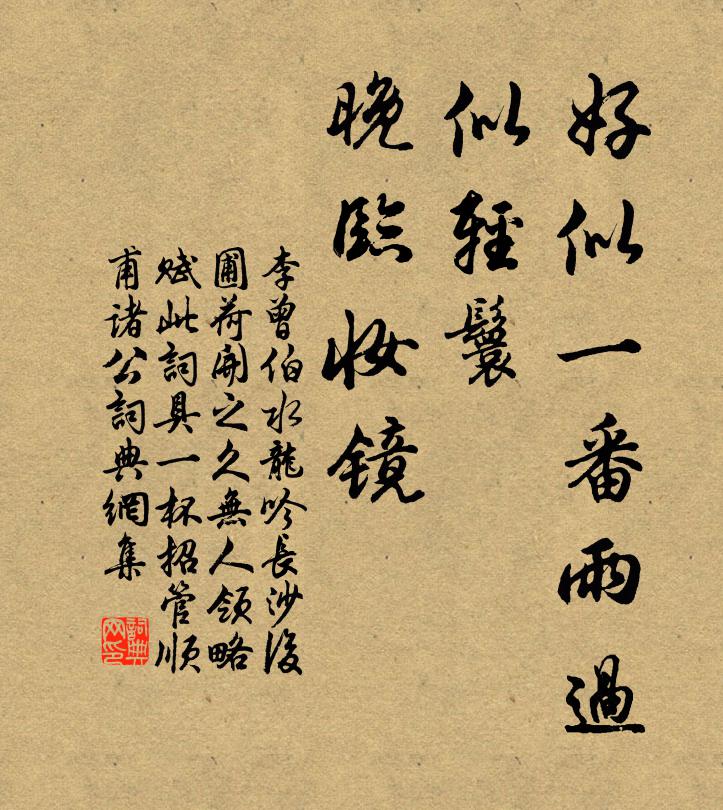 好似一番雨過
似輕鬟
晚臨妝鏡
李曾伯水龍吟長沙後
圃荷開之久無人領略
賦此詞具一杯招管順
甫諸公詞典網集
詞典
网印